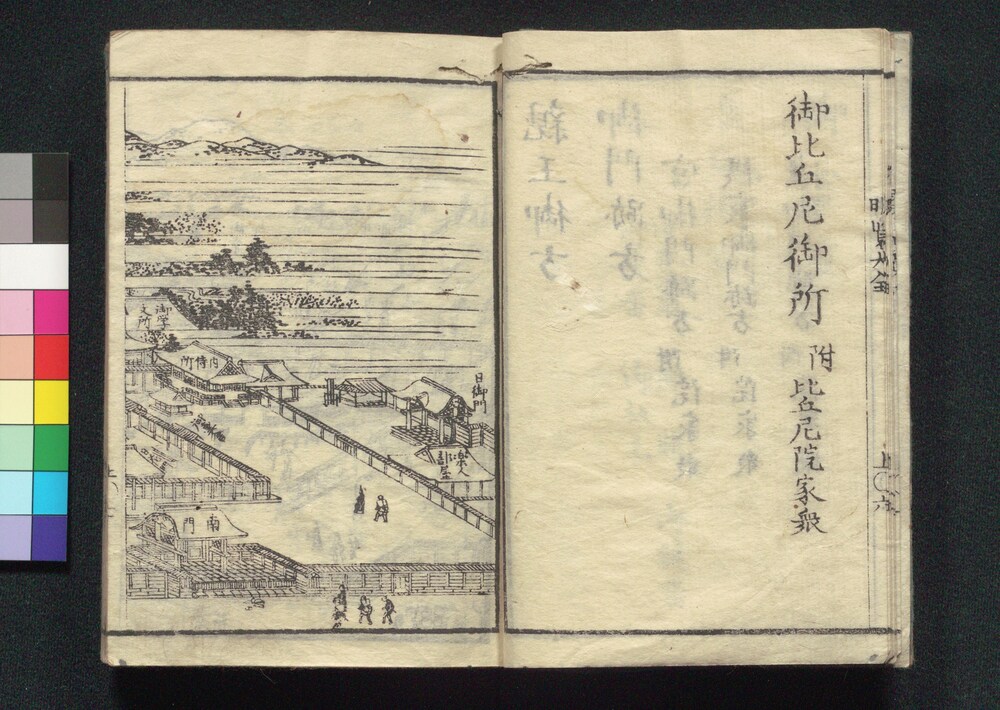 御比丘尼御所
附比丘尼院家衆
日御門
楽部屋
御学文所
内侍所
南門